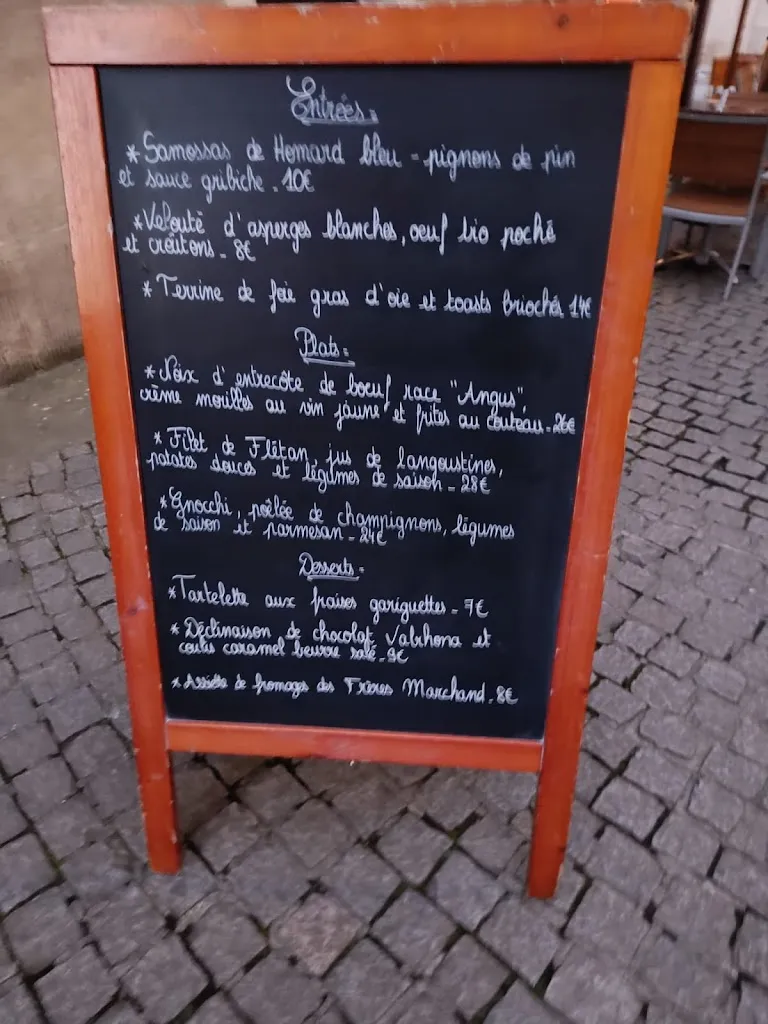 Entrées.
* Samossas de Homard bleu - pignons de pin
et sauce gribiche. 10€
* Velouté d'asperges blanches, oeuf bio poché
et croûtons. 8€
* Terrine de foie gras d'oie et toasts briochés. 14€
Plats.
* Noix d'entrecôte de boeuf race "Angus",
crème morilles au vin jaune et frites au couteau. 26€
* Filet de Flétan, jus de langoustines,
patates douces et légumes de saison. 28€
* Gnocchi, poêlée de champignons, légumes
de saison et parmesan. 24€
Desserts.
* Tartelette aux fraises gariguettes. 7€
* Déclinaison de chocolat Valrhona et
coulis caramel beurre salé. 9€
* Assiette de fromages des Frères Marchand. 8€